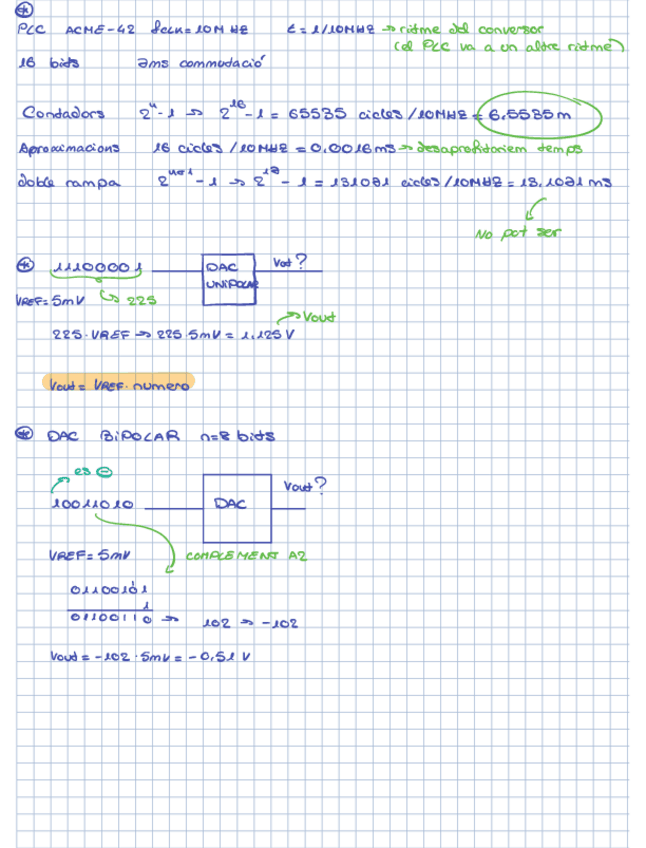 PLC ACME-42 fclk=10MHz t=1/10MHz → ritme del conversor
(el PLC va a un altre ritme)
16 bits 8ms commutació
Comtadors 2ⁿ-1 → 2¹⁶-1 = 65535 cicles/10MHz = 6,5535m
Aproximacions 16 cicles/10MHz = 0,0016ms → desaprofitariem temps
doble rampa 2ⁿ⁺¹-1 → 2¹⁷-1 = 131071 cicles/10MHz = 13,1071 ms
No pot ser
11100001 DAC UNIPOLAR Vout?
VREF=5mV → 225
→ Vout
225·VREF → 225·5mV = 1,125V
Vout = VREF·numero
DAC BIPOLAR n=8 bits
es ⊖
10011010 DAC Vout?
VREF=5mV COMPLEMENT A2
01100101
1
01100110 → 102 → -102
Vout = -102·5mV = -0,51 V